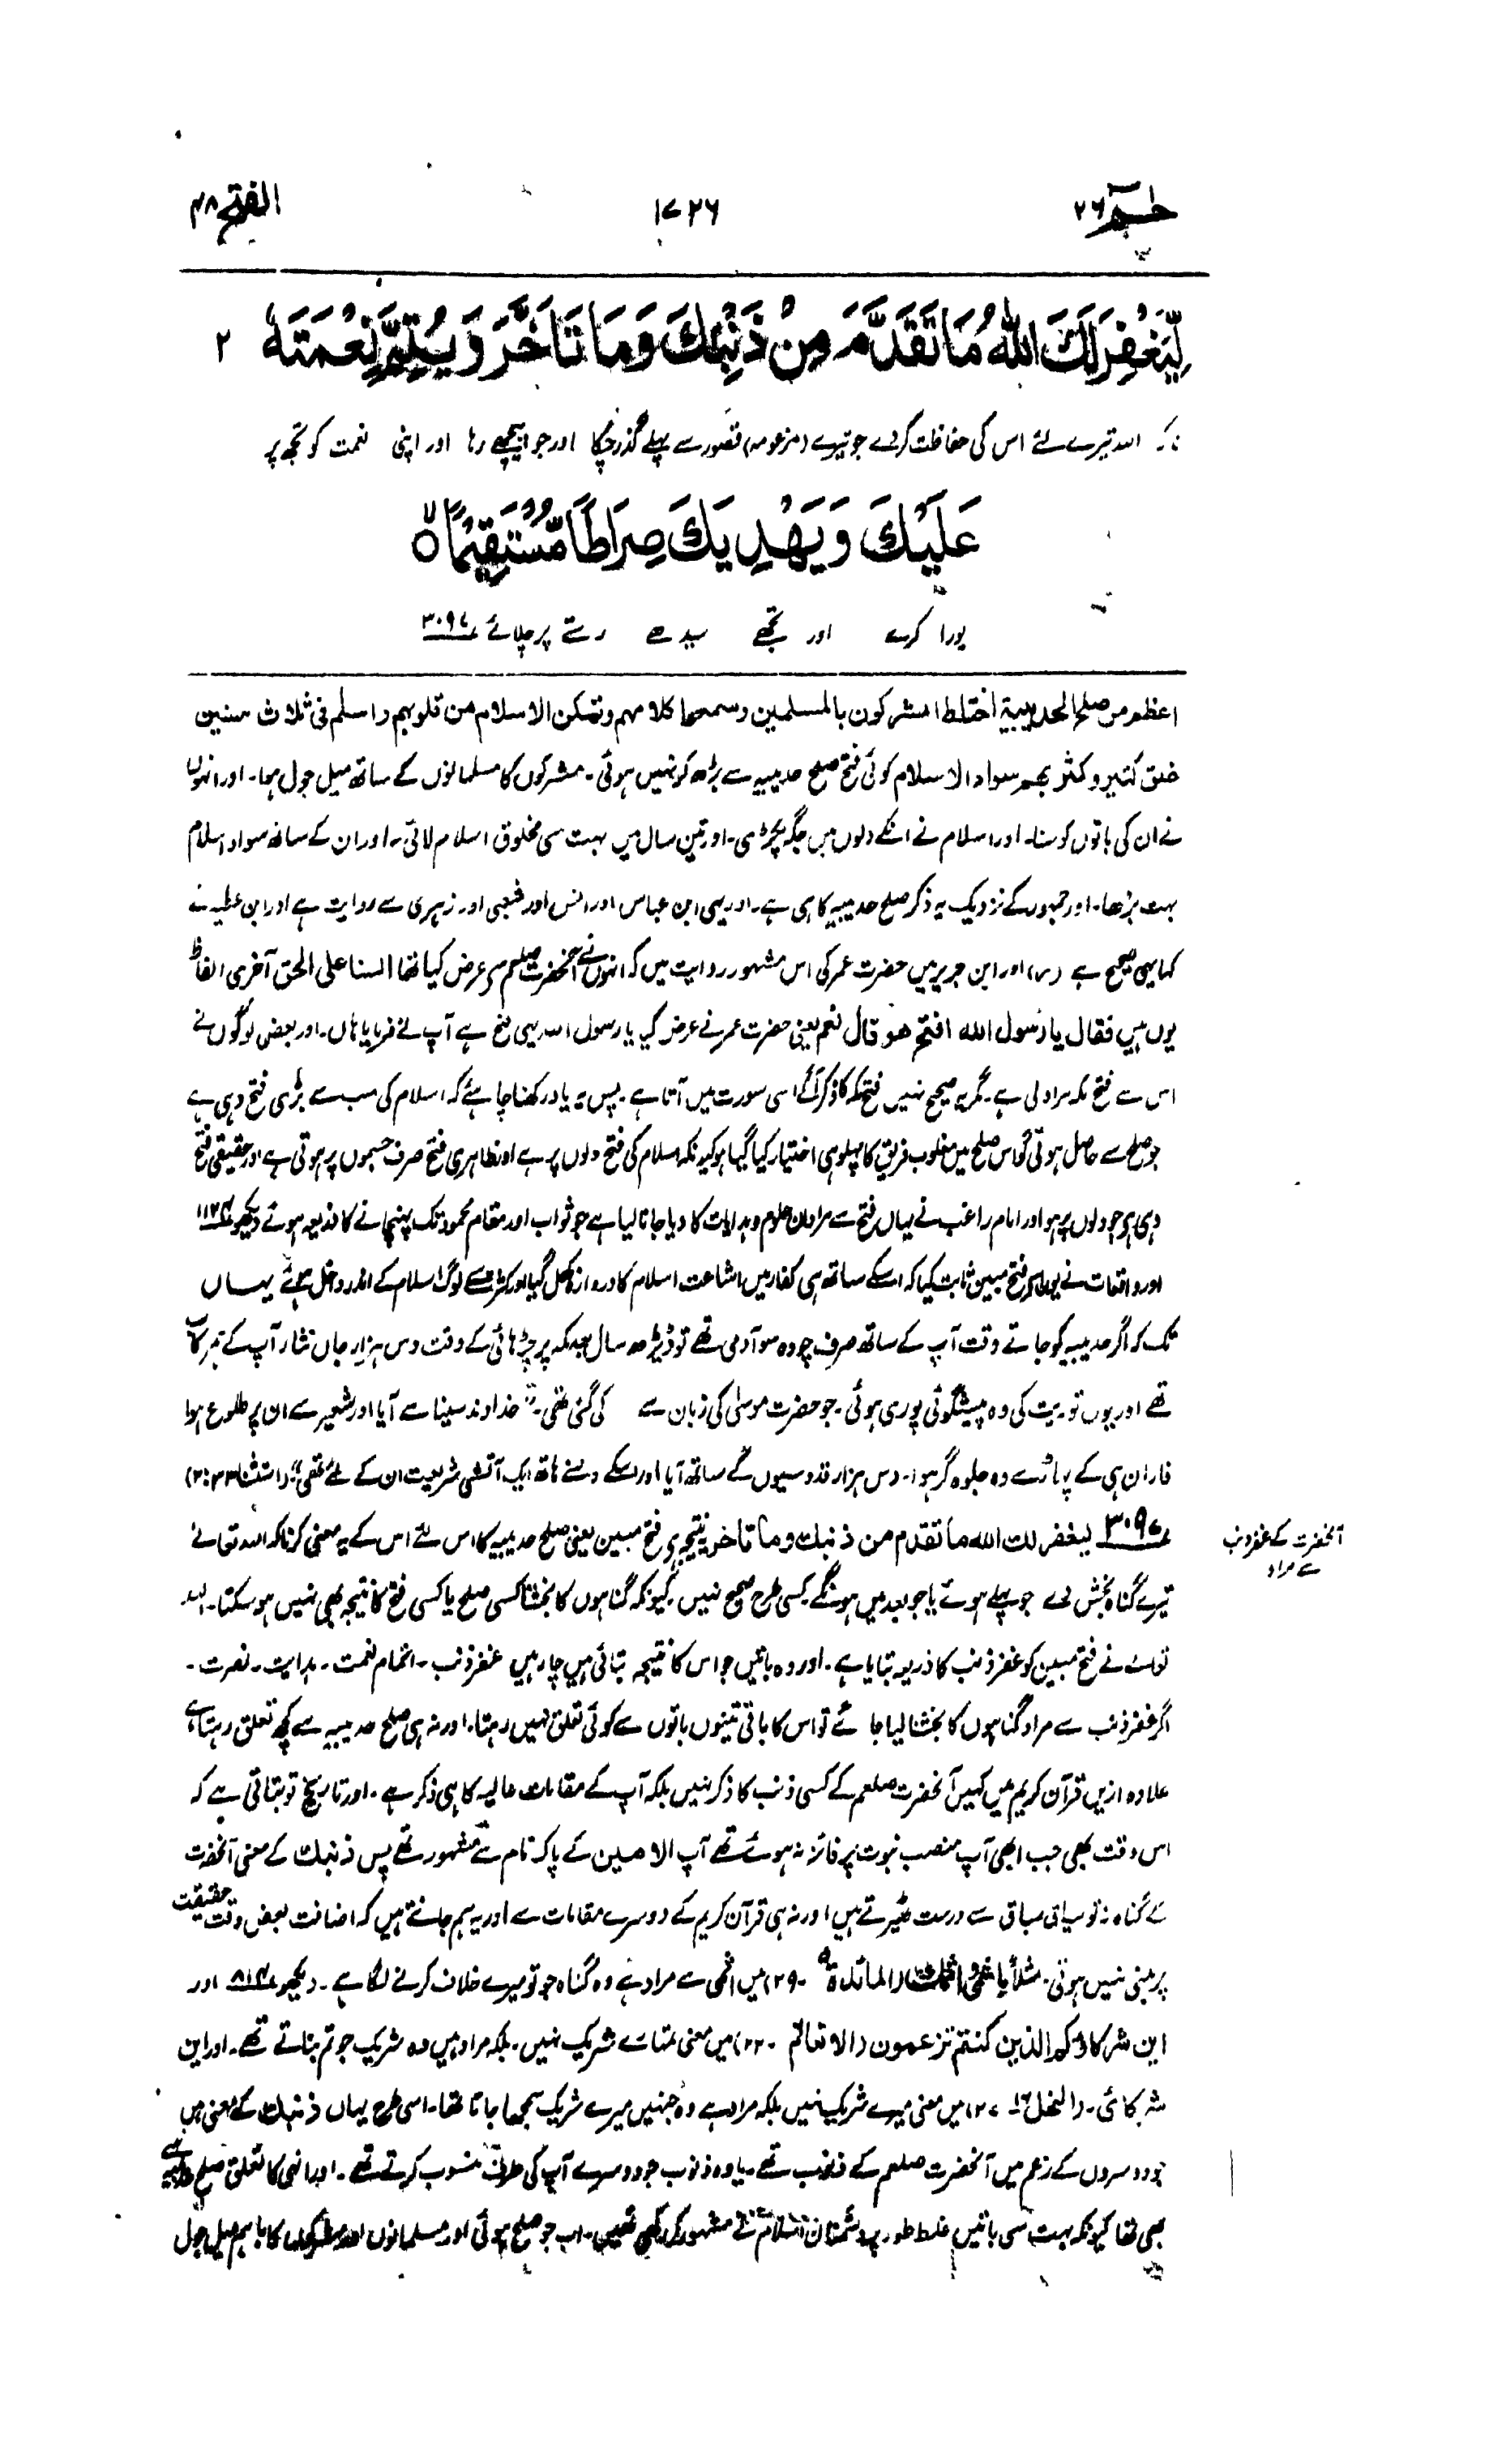 حٰمٓ ۲۶
۱۷۲۶
الفتح ۴۸
لِّيَغْفِرَ لَكَ اللّٰهُ مَا تَقَدَّمَ مِنْ ذَنْۢبِكَ وَمَا تَاَخَّرَ وَيُتِمَّ نِعْمَتَهٗ ۲
تاکہ اللہ تیرے لئے اس کی حفاظت کردے جو تیرے (مزعومہ) قصور سے پہلے گذر چکا اور جو پیچھے رہا اور اپنی نعمت کو تجھ پر
عَلَيْكَ وَيَهْدِيَكَ صِرَاطًا مُّسْتَقِيْمًا ۙ
پورا کرے اور تجھے سیدھے رستے پر چلائے ۳۰۹۷
اعظم من صلح الحدیبیۃ اختلط المشرکون بالمسلمین وسمعوا کلامہم وتمکن الاسلام من قلوبہم واسلم فی ثلاث سنین
خلق کثیر وکثر بہم سواد الاسلام کوئی فتح صلح حدیبیہ سے بڑھ کو نہیں ہوئی۔ مشرکوں کا مسلمانوں کے ساتھ میل جول ہوا۔ اور انہوں
نے ان کی باتوں کو سنا۔ اور اسلام نے انکے دلوں میں جگہ پکڑی۔ اور تین سال میں بہت سی مخلوق اسلام لائی۔ اور ان کے ساتھ سواد اسلام
بہت بڑھا۔ اور جمہور کے نزدیک یہ ذکر صلح حدیبیہ کا ہی ہے۔ اور یہی ابن عباس اور انس اور شعبی اور زہری سے روایت ہے اور ابن عطیہ نے
کہا یہی صحیح ہے (ر) اور ابن جریر میں حضرت عمر کی اس مشہور روایت میں کہ انہوں نے آنحضرت صلعم سے عرض کیا تھا السنا علی الحق آخری الفاظ
یوں ہیں فقال یا رسول اللہ افتح ھو قال نعم یعنی حضرت عمر نے عرض کیا یا رسول اللہ یہی فتح ہے آپ نے فرمایا ہاں۔ اور بعض لوگوں نے
اس سے فتح مکہ مراد لی ہے۔ مگر یہ صحیح نہیں فتح مکہ کا ذکر آگے اسی سورت میں آتا ہے۔ پس یہ یاد رکھنا چاہئے کہ اسلام کی سب سے بڑی فتح وہی ہے
جو صلح سے حاصل ہوئی گو اس صلح میں مغلوب فریق کا پہلو ہی اختیار کیا گیا ہو کیونکہ اسلام کی فتح دلوں پر ہے اور ظاہری فتح صرف جسموں پر ہوتی ہے اور حقیقی فتح
وہی ہے جو دلوں پر ہو اور امام راغب نے یہاں فتح سے مراد ان علوم و ہدایات کا دیا جانا لیا ہے جو ثواب اور مقام محمود تک پہنچانے کا ذریعہ ہوئے دیکھو ۱۱۷۴
اور واقعات نے یوں اسکو فتح مبین ثابت کیا کہ اسکے ساتھ ہی کفار میں اشاعت اسلام کا دروازہ کھل گیا اور کثرت سے لوگ اسلام کے اندر داخل ہوئے یہاں
تک کہ اگر حدیبیہ کو جاتے وقت آپ کے ساتھ صرف چودہ سو آدمی تھے تو ڈیڑھ سال بعد مکہ پر چڑھائی کے وقت دس ہزار جاں نثار آپ کے ہمرکاب
تھے اور یوں توریت کی وہ پیشگوئی پوری ہوئی۔ جو حضرت موسیٰ کی زبان سے کی گئی تھی۔ خداوند سینا سے آیا اور شعیر سے ان پر طلوع ہوا
فاران ہی کے پہاڑ سے وہ جلوہ گر ہوا۔ دس ہزار قدوسیوں کے ساتھ آیا اور اسکے دہنے ہاتھ ایک آتشی شریعت ان کے لئے تھی" (استثنا ۳۳:۲)
۳۰۹۷ لیغفر لک اللہ ما تقدم من ذنبک وما تاخر یہ نتیجہ ہے فتح مبین یعنی صلح حدیبیہ کا اس لئے اس کے یہ معنی کرنا کہ اللہ تعالےٰ
تیرے گناہ بخش دے جو پہلے ہوئے یا جو بعد میں ہونگے کسی طرح صحیح نہیں۔ کیونکہ گناہوں کا بخشنا کسی صلح یا کسی فتح کا نتیجہ بھی نہیں ہو سکتا۔ اللہ
تعالےٰ نے فتح مبین کو غفر ذنب کا ذریعہ بتایا ہے۔ اور وہ باتیں جو اس کا نتیجہ بتائی ہیں چار ہیں غفر ذنب۔ اتمام نعمت۔ ہدایت۔ نصرت۔
اگر غفر ذنب سے مراد گناہوں کا بخشنا لیا جائے تو اس کا باقی تینوں باتوں سے کوئی تعلق نہیں رہتا۔ اور نہ ہی صلح حدیبیہ سے کچھ تعلق رہتا ہے
علاوہ ازیں قرآن کریم میں کہیں آنحضرت صلعم کے کسی ذنب کا ذکر نہیں بلکہ آپ کے مقامات عالیہ کا ہی ذکر ہے۔ اور تاریخ تو بتاتی ہے کہ
اس وقت بھی جب ابھی آپ منصب نبوت پر فائز نہ ہوئے تھے آپ الامین کے پاک نام سے مشہور تھے پس ذنبک کے معنی آنحضرت
کے گناہ نہ تو سیاق سباق سے درست ٹھیرتے ہیں اور نہ ہی قرآن کریم کے دوسرے مقامات سے اور یہ ہم جانتے ہیں کہ اضافت بعض وقت حقیقت
پر مبنی نہیں ہوتی۔ مثلاً باثمی واثمک (المائدۃ ۵۔ ۲۹) میں اثمی سے مراد ہے وہ گناہ جو تو میرے خلاف کرنے لگا ہے۔ دیکھو ۸۱۴ اور
این شرکاؤکم الذین کنتم تزعمون (الانعام ۔ ۲۲) میں معنی تمہارے شریک نہیں۔ بلکہ مراد ہیں وہ شریک جو تم بناتے تھے۔ اور این
شرکائی۔ (النحل ۱۶۔ ۲۷) میں معنی میرے شریک نہیں بلکہ مراد ہے وہ جنہیں میرے شریک سمجھا جاتا تھا۔ اسی طرح یہاں ذنبک کے معنی ہیں
جو دوسروں کے زعم میں آنحضرت صلعم کے ذنوب تھے۔ یا وہ ذنوب جو دوسرے آپ کی طرف منسوب کرتے تھے۔ اور انہی کا تعلق صلح حدیبیہ سے
بھی تھا کیونکہ بہت سی باتیں غلط طور پر دشمنان اسلام نے مشہور کر رکھی تھیں۔ اب جو صلح ہوئی اور مسلمانوں اور مشرکوں کا باہم میل جول
آنحضرت کے غفر ذنب
سے مراد